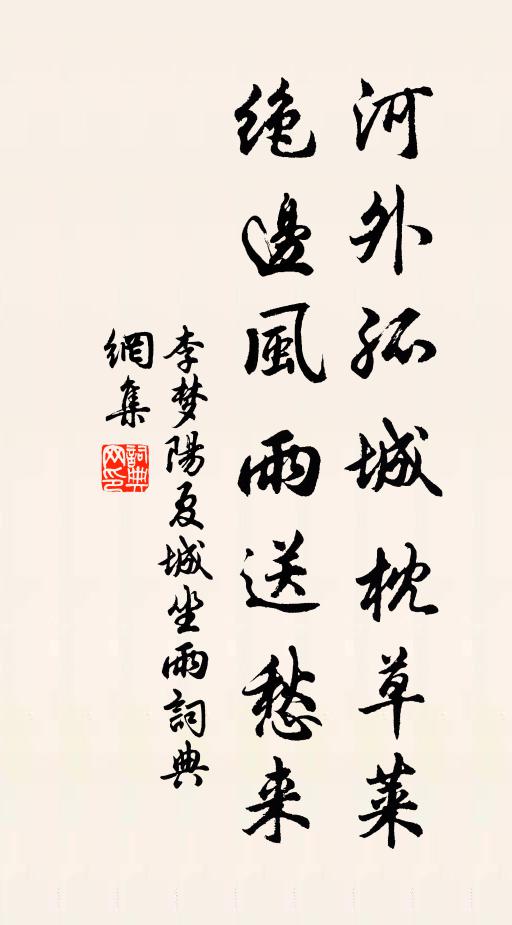 河外孤城枕草萊
絶邊風雨送愁来
李梦陽夏城坐雨詞典
網集
詞典
网印